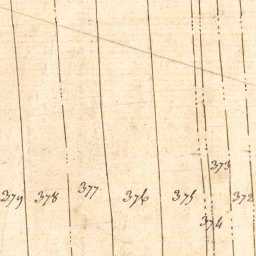 373
377
379 378 376 375 372
374